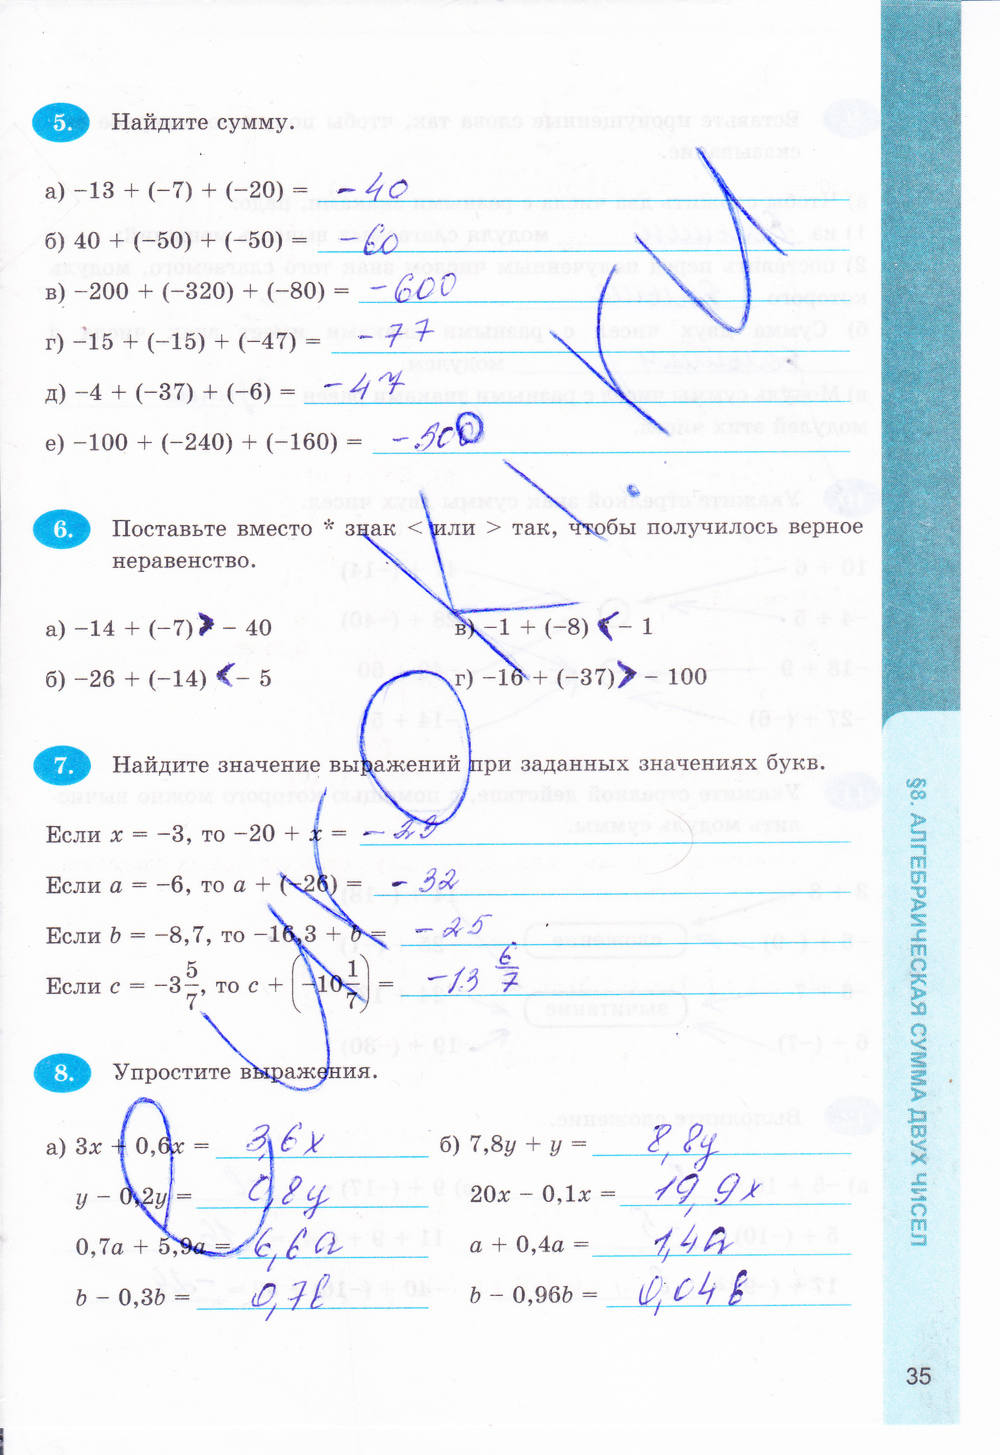 5. Найдите сумму.
а) −13 + (−7) + (−20) = −40
б) 40 + (−50) + (−50) = −60
в) −200 + (−320) + (−80) = −600
г) −15 + (−15) + (−47) = −77
д) −4 + (−37) + (−6) = −47
е) −100 + (−240) + (−160) = −500
6. Поставьте вместо * знак < или > так, чтобы получилось верное
неравенство.
а) −14 + (−7) > − 40
в) −1 + (−8) < − 1
б) −26 + (−14) < − 5
г) −16 + (−37) > − 100
7. Найдите значение выражений при заданных значениях букв.
Если x = −3, то −20 + x = −23
Если a = −6, то a + (−26) = −32
Если b = −8,7, то −16,3 + b = −25
Если c = −3 5/7, то c + (−10 1/7) = −13 6/7
8. Упростите выражения.
а) 3x + 0,6x = 3,6x
б) 7,8y + y = 8,8y
y − 0,2y = 0,8y
20x − 0,1x = 19,9x
0,7a + 5,9a = 6,6a
a + 0,4a = 1,4a
b − 0,3b = 0,7b
b − 0,96b = 0,04b
§8. АЛГЕБРАИЧЕСКАЯ СУММА ДВУХ ЧИСЕЛ
35